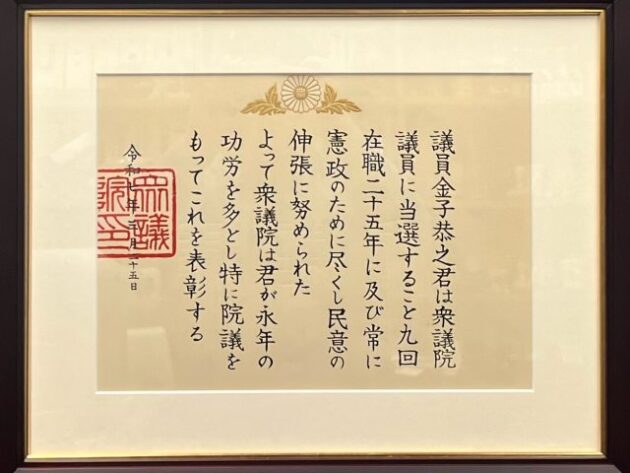 議員金子恭之君は衆議院
議員に当選すること九回
在職二十五年に及び常に
憲政のために尽くし民意の
伸張に努められた
よって衆議院は君が永年の
功労を多とし特に院議を
もってこれを表彰する
令和七年 月二十五日
衆議
院印